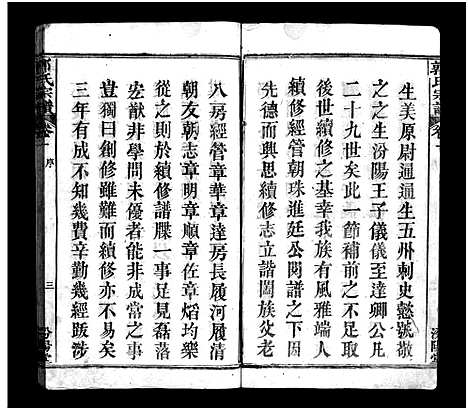 郭氏宗譜 卷一
生美原尉通通生五州刺史懿號敬
之之生汾陽王子儀儀至達卿公凡
二十九世矣此一節補前之不足取
後世續修之基幸我族有風雅端人
續修經管朝珠進廷公閱譜見
先德而興思續修志立諧闔族父老
八房經管章華章達房長履河履清
朝友朝志章明章順章佐章熖均樂
從之則於續修譜牒一事足見磊落
宏猷非學問未優者能非成當之事
豈獨曰創修雖難而續修亦不易矣
三年有成不知幾費辛勤幾經跋涉
郭氏宗譜 卷一 序 三